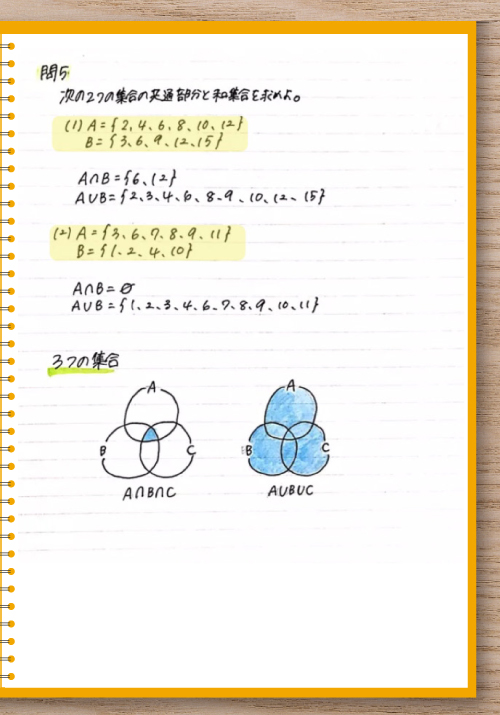 問5
次の2つの集合の共通部分と和集合を求めよ。
(1) A={2,4、6、8、10、12}
B={3、6、9、12、15}
A∩B={6、12}
A∪B={2、3、4、6、8、9、10、12、15}
(2) A={3、6、7、8、9、11}
B={1、2、4、10}
A∩B=∅
A∪B={1、2、3、4、6、7、8、9、10、11}
3つの集合
A
B
C
A∩B∩C
A
B
C
A∪B∪C